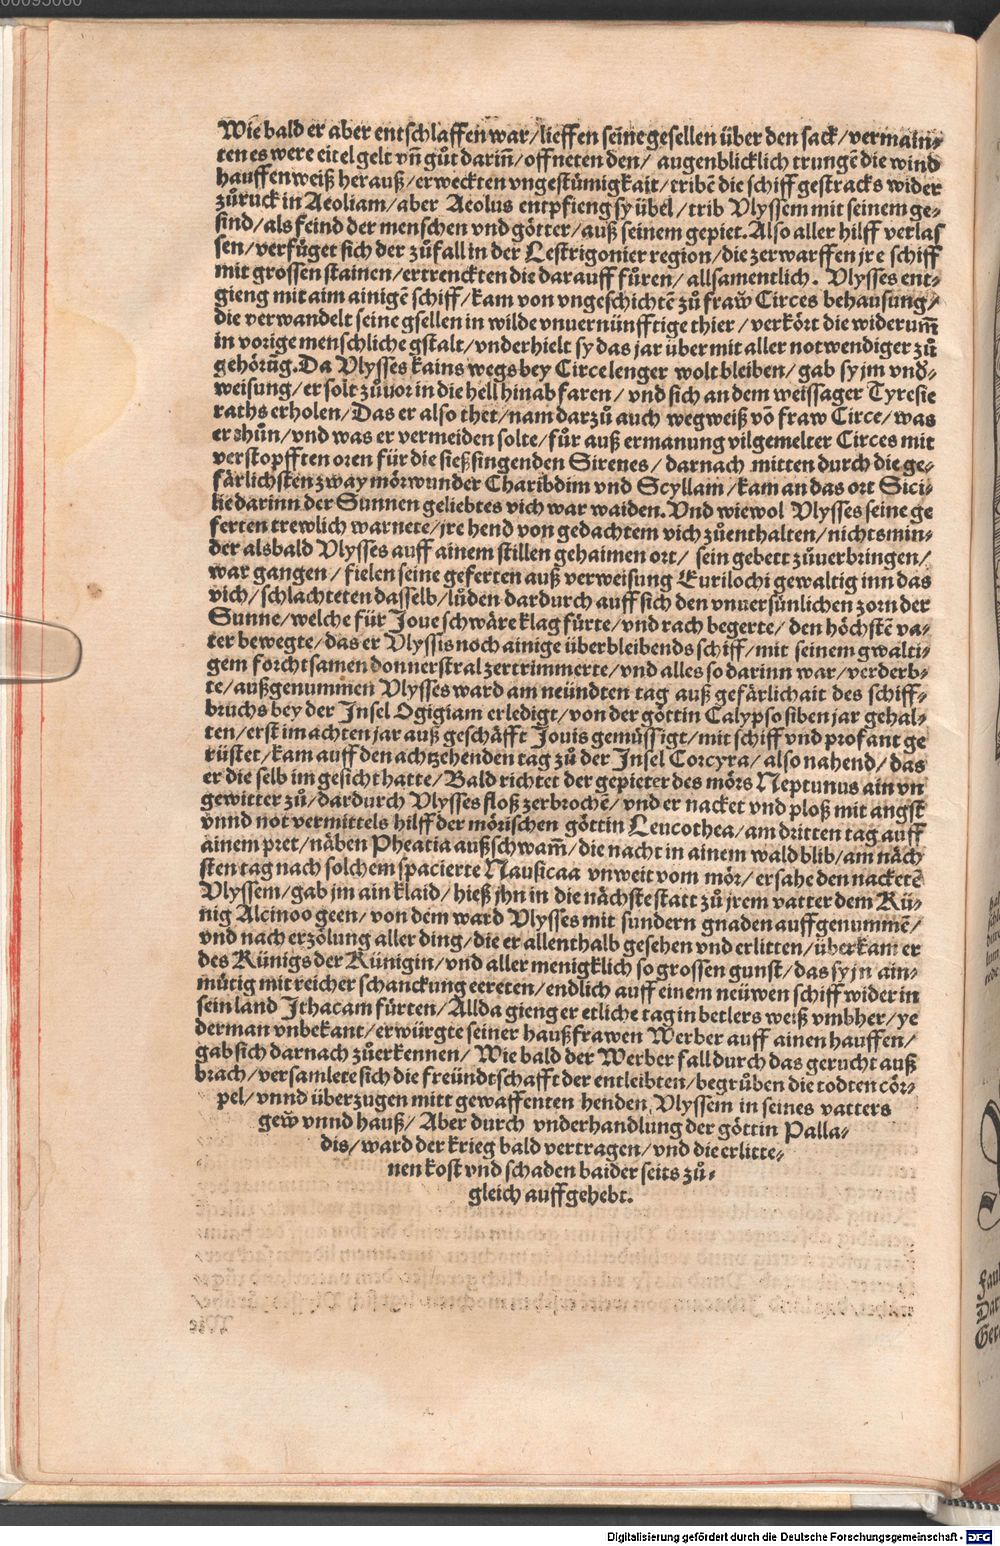 Wie bald er aber entschlaffen war/lieffen seine gesellen über den sack/vermain⸗
ten es were eitel gelt vñ gůt dariñ/offneten den/ augenblicklich trungẽ die wind
hauffenweiß herauß/erweckten vngestümigkait/tribẽ die schiff gestracks wider
zůruck in Aeoliam/aber Aeolus entpfieng sy übel/trib Vlyssem mit seinem ge⸗
sind/als feind der menschen vnd götter/auß seinem gepiet. Also aller hilff verlas
sen/verfůget sich der zůfall in der Lestrigonier region/die zerwarffen jre schiff
mit grossen stainen/ertrenckten die darauff fůren/ allsamentlich. Vlysses ent⸗
gieng mit aim ainigẽ schiff/kam von vngeschichtẽ zů fraw Circes behausung/
die verwandelt seine gsellen in wilde vnuernünfftige thier/verkört die widerum̃
in vorige menschliche gstalt/vnderhielt sy das jar über mit aller notwendiger zů
gehörũg. Da Vlysses kains wegs bey Circe lenger wolt bleiben/ gab sy jm vnd⸗
weisung/er solt zůuor in die hell hinab faren/ vnd sich an dem weissager Tyresie
raths erholen/Das er also thet/nam darzů auch wegweiß võ fraw Circe/was
er thůn/vnd was er vermeiden solte/fůr auß ermanung vilgemelter Circes mit
verstopfften oren für die sießsingenden Sirenes/ darnach mitten durch die ge⸗
färlichsten zway mörwunder Charibdim vnd Scyllam/kam an das ort Sici⸗
lie darinn der Sunnen geliebtes vich war waiden. Vnd wiewol Vlysses seine ge
ferten trewlich warnete/jre hend von gedachtem vich zůenthalten/nichtsmin⸗
der alsbald Vlysses auff ainem stillen gehaimen ort/ sein gebett zůuerbringen/
war gangen/fielen seine geferten auß verweisung Eurilochi gewaltig inn das
vich/schlachteten dasselb/lůden dardurch auff sich den vnuersünlichen zorn der
Sunne/welche für Joue schwäre klag fürte/vnd rach begerte/ den höchstẽ va⸗
ter bewegte/das er Vlyssis noch ainige überbleibends schiff/mit seinem gwalti⸗
gem forchtsamen donnerstral zertrimmerte/vnd alles so darinn war/verderb⸗
te/außgenummen Vlysses ward am neündten tag auß gefärlichait des schiff⸗
bruchs bey der Insel Ogigiam erledigt/von der göttin Calypso siben jar gehal⸗
ten/erst im achten jar auß geschäfft Jouis gemüssigt/mit schiff vnd profant ge
rüstet/kam auff den achtzehenden tag zů der Insel Corcyra/ also nahend/ das
er die selb im gesicht hatte/Bald richtet der gepieter des mörs Neptunus ain vn
gewitter zů/dardurch Vlysses floß zerbrochẽ/vnd er nacket vnd ploß mit angst
vnnd not vermittels hilff der mörischen göttin Leucothea/am dritten tag auff
ainem pret/näben Pheatia außschwam̃/die nacht in ainem wald blib/am näch
sten tag nach solchem spacierte Nausicaa vnweit vom mör/ersahe den nacketẽ
Vlyssem/gab jm ain klaid/hieß jhn in die nächste statt zů jrem vatter dem Kü⸗
nig Alcinoo geen/von dem ward Vlysses mit sundern gnaden auffgenummẽ/
vnd nach erzölung aller ding/die er allenthalb gesehen vnd erlitten/überkam er
des Künigs der Künigin/vnd aller menigklich so grossen gunst/das sy jn ain⸗
mütig mit reicher schanckung eereten/endlich auff einem neüwen schiff wider in
sein land Ithacam fürten/Allda gieng er etliche tag in betlers weiß vmbher/ye
derman vnbekant/erwürgte seiner haußfrawen Werber auff ainen hauffen/
gab sich darnach zůerkennen/ Wie bald der Werber fall durch das gerucht auß
brach/versamlete sich die freündtschafft der entleibten/begrůben die todten cör⸗
pel/vnnd überzugen mitt gewaffenten henden Vlyssem in seines vatters
gew̃ vnnd hauß/ Aber durch vnderhandlung der göttin Palla⸗
dis/ward der krieg bald vertragen/vnd die erlitte⸗
nen kost vnd schaden baider seits zů⸗
gleich auffgehebt.
Digitalisierung gefördert durch die Deutsche Forschungsgemeinschaft - DFG